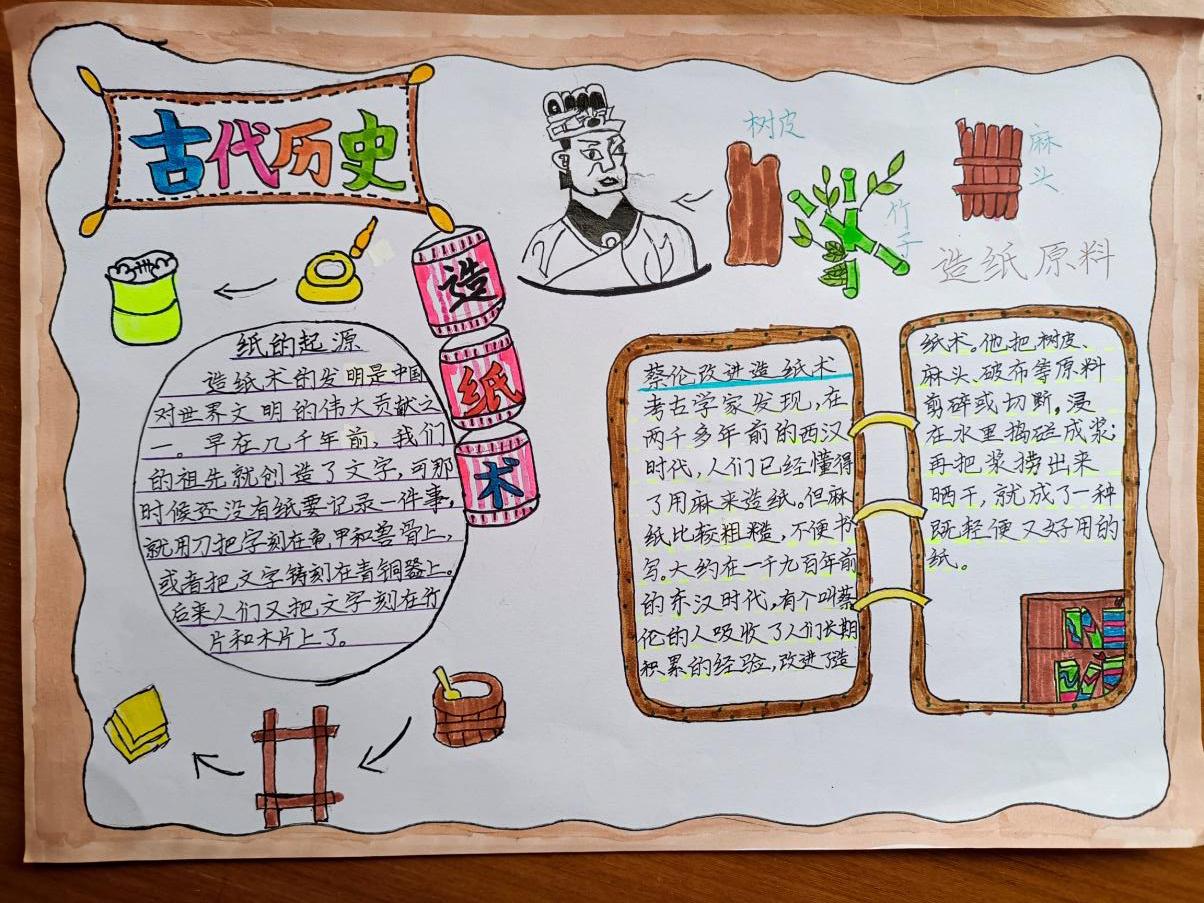 古代历史
造
纸
术
树皮
竹子
麻头
造纸原料
纸的起源
造纸术的发明是中国
对世界文明的伟大贡献之
一。早在几千年前,我们
的祖先就创造了文字,可那
时候还没有纸要记录一件事,
就用刀把字刻在龟甲和兽骨上,
或者把文字铸刻在青铜器上。
后来人们又把文字刻在竹
片和木片上了。
蔡伦改进造纸术
考古学家发现,在
两千多年前的西汉
时代,人们已经懂得
了用麻来造纸。但麻
纸比较粗糙,不便书
写。大约在一千九百年前
的东汉时代,有个叫蔡
伦的人吸收了人们长期
积累的经验,改进了造
纸术。他把树皮、
麻头、破布等原料
剪碎或切断,浸
在水里捣碰成浆;
再把浆捞出来
晒干,就成了一种
既轻便又好用的
纸。